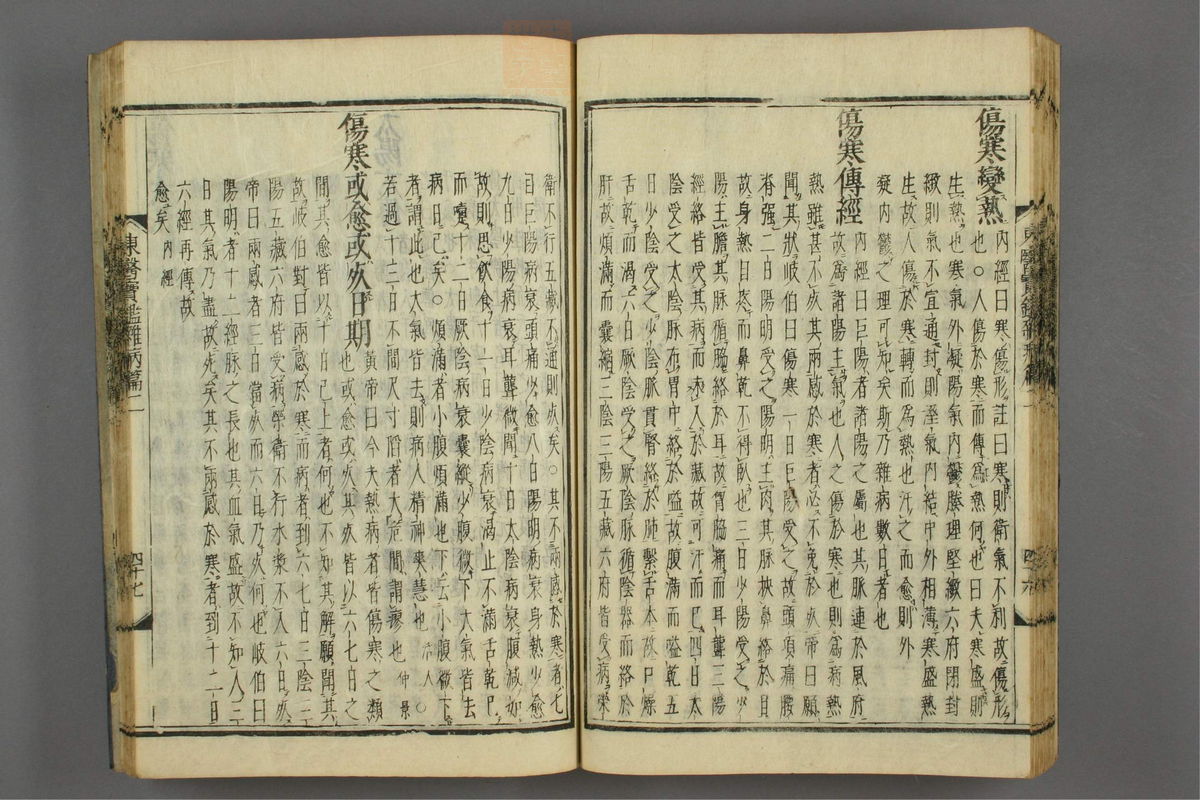 傷寒變熱
內經曰寒傷形註曰寒則衛氣不利故傷形
也○人傷於寒而傳爲熱何也曰夫寒盛則
生熱也寒氣外凝陽氣內鬱腠理堅緻六府閉封
緻則氣不宜通封則溼氣內結中外相薄寒盛熱
生故人傷於寒轉而爲熱也汗之而愈則外
凝內鬱之理可知矣斯乃雜病數日者也
傷寒傳經
內經曰巨陽者諸陽之屬也其脉連於風府
故爲諸陽主氣也人之傷於寒也則爲病熱
熱雖甚不死其兩感於寒者必不免於死帝曰願
聞其狀岐伯曰傷寒一日巨陽受之故頭項痛腰
脊強二日陽明受之陽明主肉其脉挾鼻絡於目
故身熱目疼而鼻乾不得臥也三日少陽受之少
陽主膽其脉循脇絡於耳故胷脇痛而耳聾三陽
經絡皆受其病而未入於藏故可汗而已四日太
陰受之太陰脉布胃中絡於嗌故腹滿而嗌乾五
日少陰受之少陰脉貫腎絡於肺繫舌本故口燥
舌乾而渴六日厥陰受之厥陰脉循陰器而絡於
肝故煩滿而囊縮三陰三陽五藏六府皆受病榮
衛不行五藏不通則死矣○其不兩感於寒者七
日巨陽病衰頭痛少愈八日陽明病衰身熱少愈
九日少陽病衰耳聾微聞十日太陰病衰腹減如
故則思飲食十一日少陰病衰渴止不滿舌乾已
而嚏十二日厥陰病衰囊縱少腹微下大氣皆去
病日已矣○煩滿者小腹煩滿也下云小腹微下
者謂此也大氣皆去則病人精神爽慧也 活人○
若過十三日不間尺寸陷者大危間謂瘳也 仲景
傷寒或愈或死日期
黃帝曰今夫熱病者皆傷寒之類
也或愈或死其死皆以六七日之
間其愈皆以十日已上者何也不知其解願聞其
故岐伯對曰兩感於寒而病者到六七日三陰三
陽五藏六府皆受病榮衛不行水漿不入六日死
帝曰兩感者三日當死而六日乃死何也岐伯曰
陽明者十二經脉之長也其血氣盛故不知人三
日其氣乃盡故死矣其不兩感於寒者到十二日
六經再傳故
愈矣 內經
東醫寶鑑雜病篇二
四十七